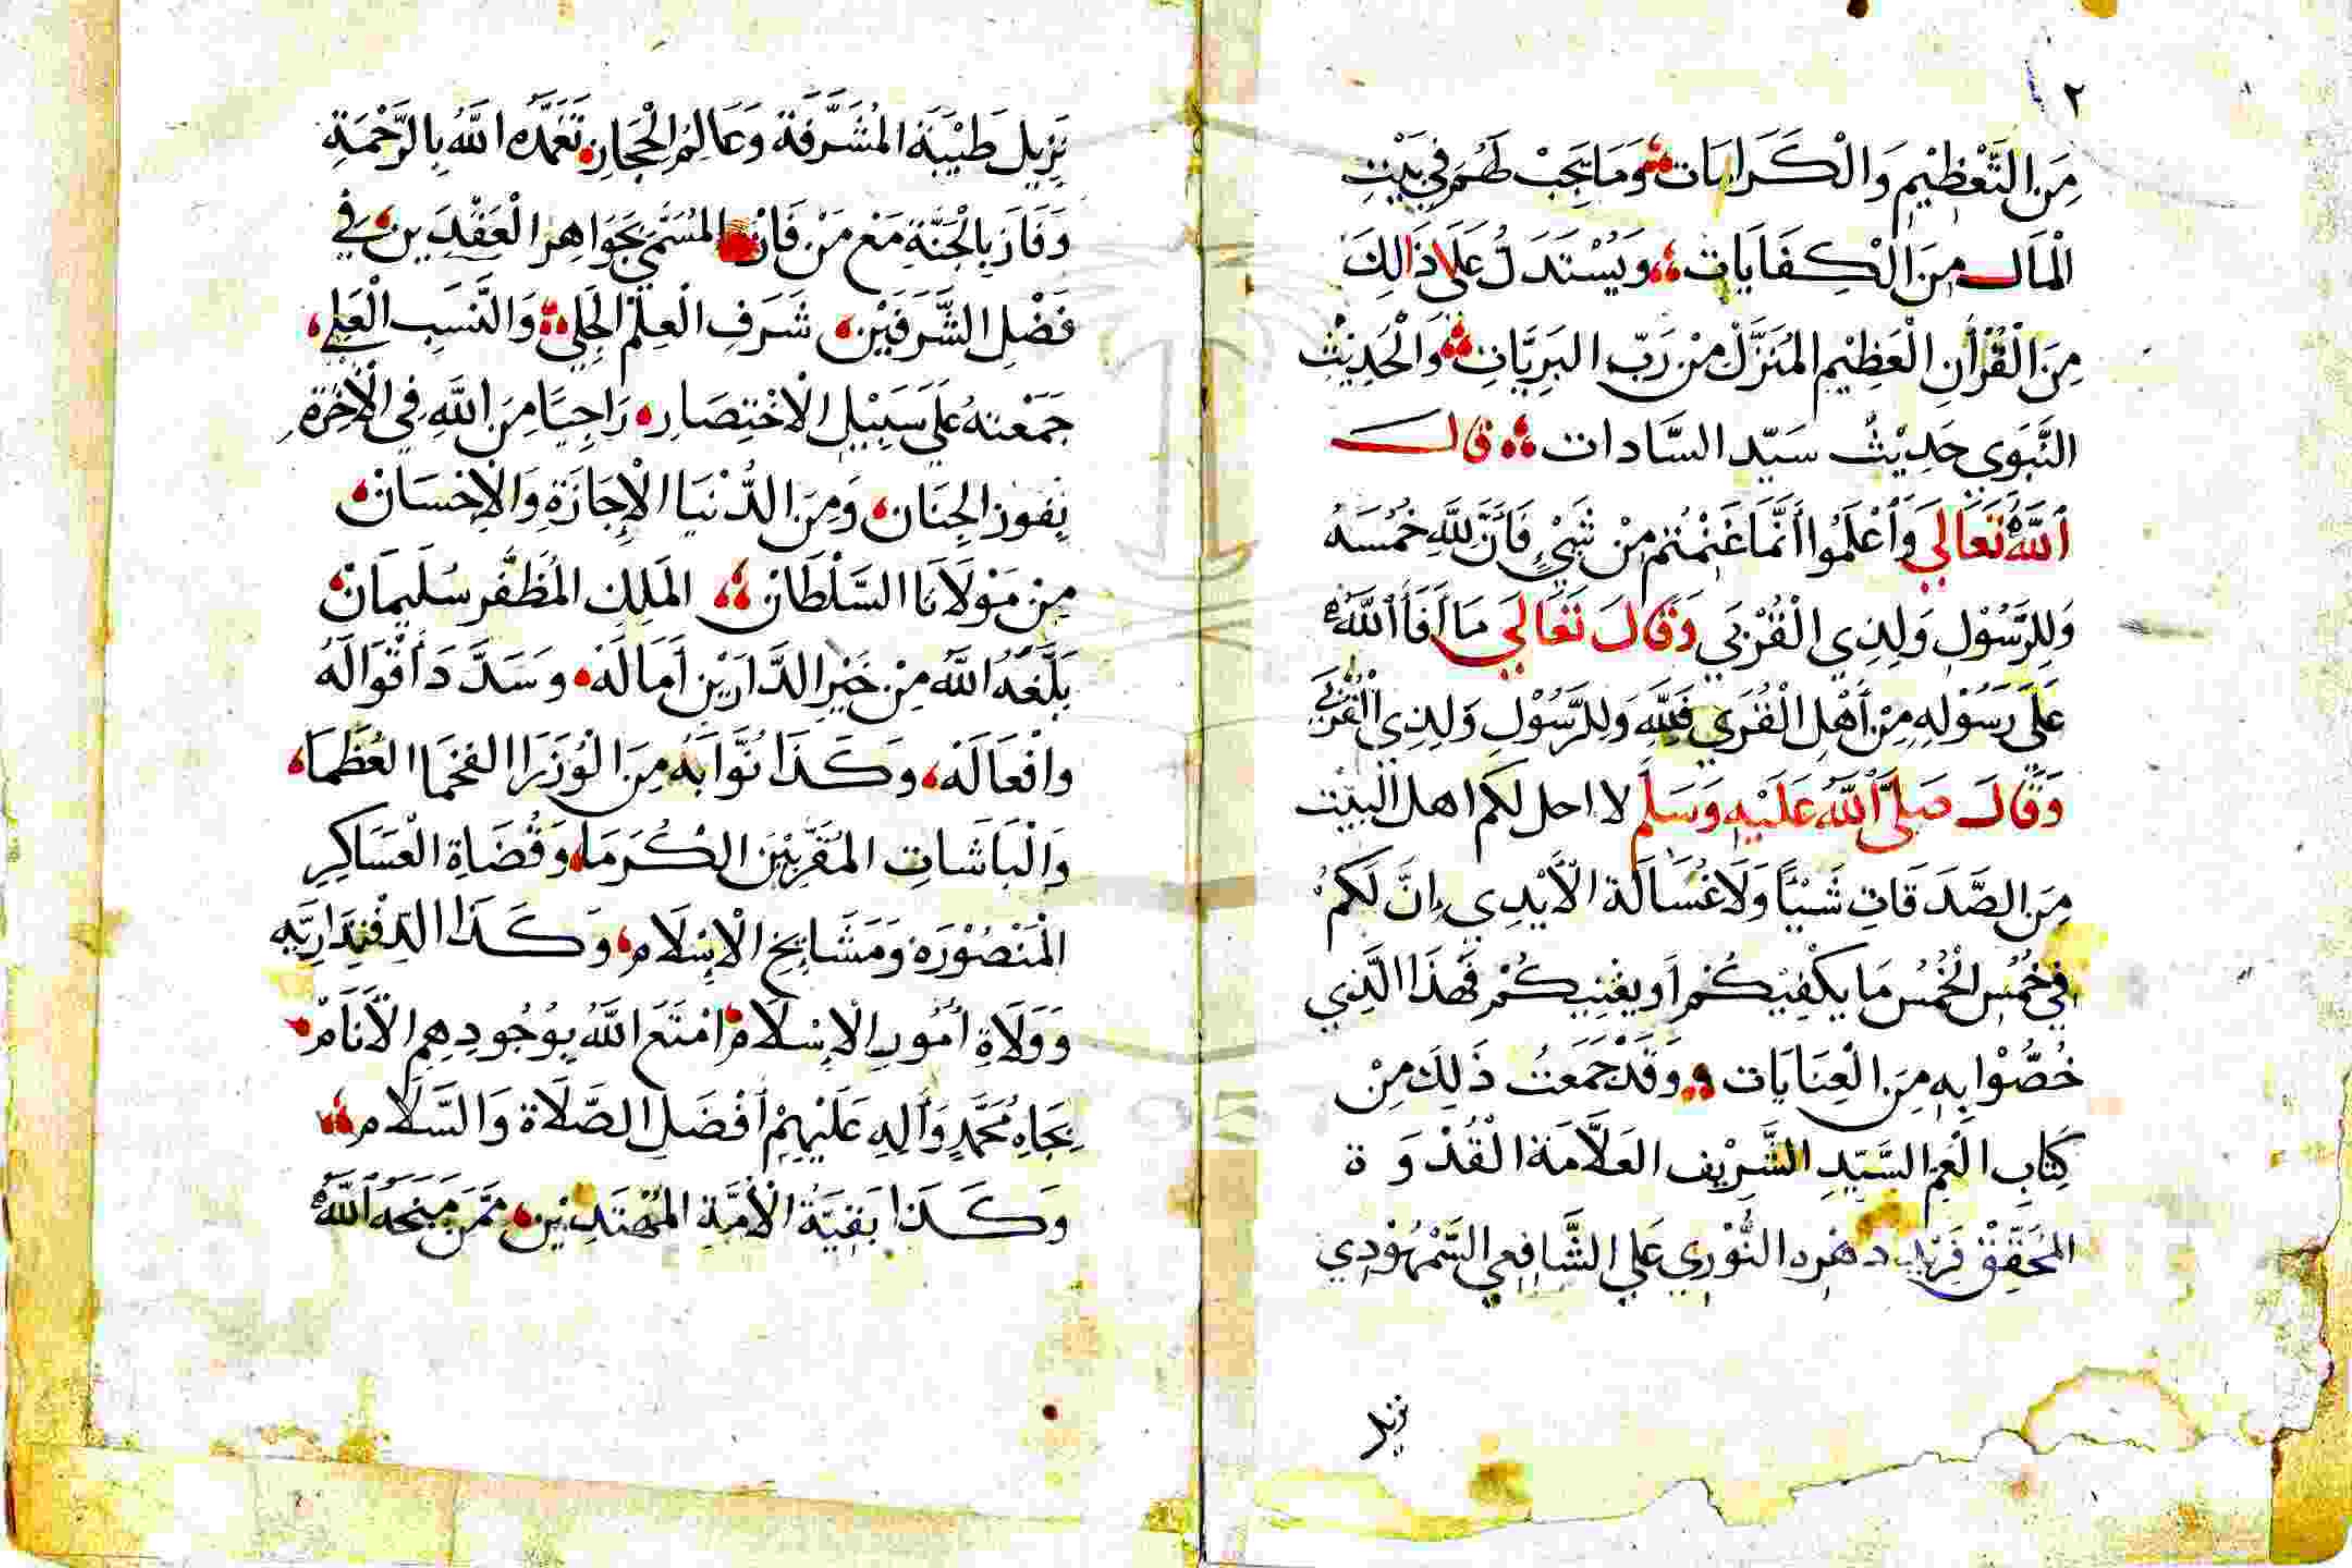 ٢
مِنَ التَّعْظِيْمِ وَالْكَرَامَات وَمَا يَجِبْ لَهُمْ فِي بَيْتِ
الْمَال مِنَ الْكِفَايَاتِ وَيُسْتَدَلُّ عَلَى ذَالِكَ
مِنَ الْقُرْأنِ الْعَظِيْمِ المُنَزَّلْ مِنْ رَبِّ البَرِيَّاتِ وَالْحَدِيْثِ
النَّبَوِي حَدِيْثُ سَيّد السَّادات قال
اَللَّهُ تَعَالَي وَاَعْلَمُوا أَنَّمَا غَنِمْتُم مِنْ شَيْءٍ فَأَنَّ لِلَّهِ خُمُسَهُ
وَلِلرَّسُوْلِ وَلِذِي الْقُرْبَي وَقَالَ تَعَالَي مَا أَفَأَ اللَّهُ
عَلَى رَسُوْلِهِ مِنْ أَهْلِ الْقُرَي فَلِلَّهِ وَلِلرَّسُوْلِ وَلِذِي الْقُرْبَي
وَقَالَ صَلَّى اللَّهُ عَلَيْهِ وَسَلَّمَ لا احل لكم اهل البيت
مِنَ الصَّدَقَاتِ شَيْئًا وَلَا غُسَالَة الْأَيْدِي إِنَّ لَكُمْ
فِي خُمُسِ الْخُمُسِ مَا يَكْفِيْكُمْ أَو يغْنِيكُمْ فَهَذَا الَّذِي
خُصُّوْا بِهِ مِنَ الْعِنَايَات وَقَدْ جَمَعْتُ ذَلِكَ مِنْ
كِتَابِ الْعَمِ السَّيّدِ الشَّرِيْف العَلَّامَة الْقُدْوَة
المُحَقِّقْ فَرْيد دهْرِه النُّوْرِي عَلي الشَّافِعِي السَّمْهُوْدِي
نزيل
نَزِيلِ طَيْبَة المُشَرَّفَة وَعَالِمُ الْحِجَازِ تَغَمَّدَه اللَّهُ بِالرَّحْمَةِ
وَفَازَ بِالْجَنَّةِ مَعْ مَنْ فَازْ المُسَمَّى بِجَوَاهِر الْعَقْدَيِنِ فِي
فَضْلِ الشَّرَفَيْنِ شَرَفِ الْعِلْمِ الْجَلِي وَالنَّسَبِ الْعَلِي
جَمَعْتهُ عَلَي سَبِيْلِ الْاخْتِصَارِ رَاجِيًا مِنَ اللَّهِ فِي الْأَخِرَة
بِفَوز الجِنَان وَمِنَ الدُّنْيَا الْإِجَازَةِ وَالْإِحْسَانْ
مِنْ مَوْلَانَا السُّلْطَانْ المَلِك المُظَفَّر سُلَيمَانْ
بَلَّغَهُ اللَّهُ مِنْ خَيْرِ الدَّارَيْنِ أَمَالَهْ وَسَدَّدَ أَقْوَالَهُ
وافْعَالَهْ وَكَذَا نُوَّابَهُ مِنَ الْوُزَرَا الفخمَا العُظَمَا
وَالْبَاشَاتِ المُقَرَّبِيْنَ الكُرَمَا وَقُضَاةِ الْعَسَاكِرِ
الْمَنْصُوْرَة وَمَشَايِخِ الْإِسْلَام وَكَذَا الدِفْتِدَارِيَّه
وَوَلَاةِ أُمُورِ الْإِسْلَامْ امْتَعَ اللَّهُ بِوُجُودِهِم الْأَنَامْ
بِجَاهِ مُحَمَّدٍ وَألِهِ عَلَيْهِمْ أَفْضَل الصَّلَاة وَالسَّلَام
وَكَذَا بَقِيَّةُ الْأُمَّةِ المُهْتَدِيْنِ مَمَّن مَنَحَهُ اللَّهُ